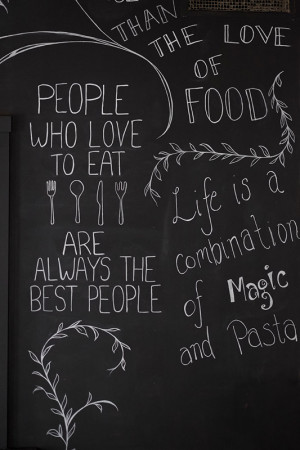 THAN
THE LOVE
OF
FOOD
PEOPLE
WHO LOVE
TO EAT
ARE
ALWAYS THE
BEST PEOPLE
Life is a
combination
of Magic
and Pasta